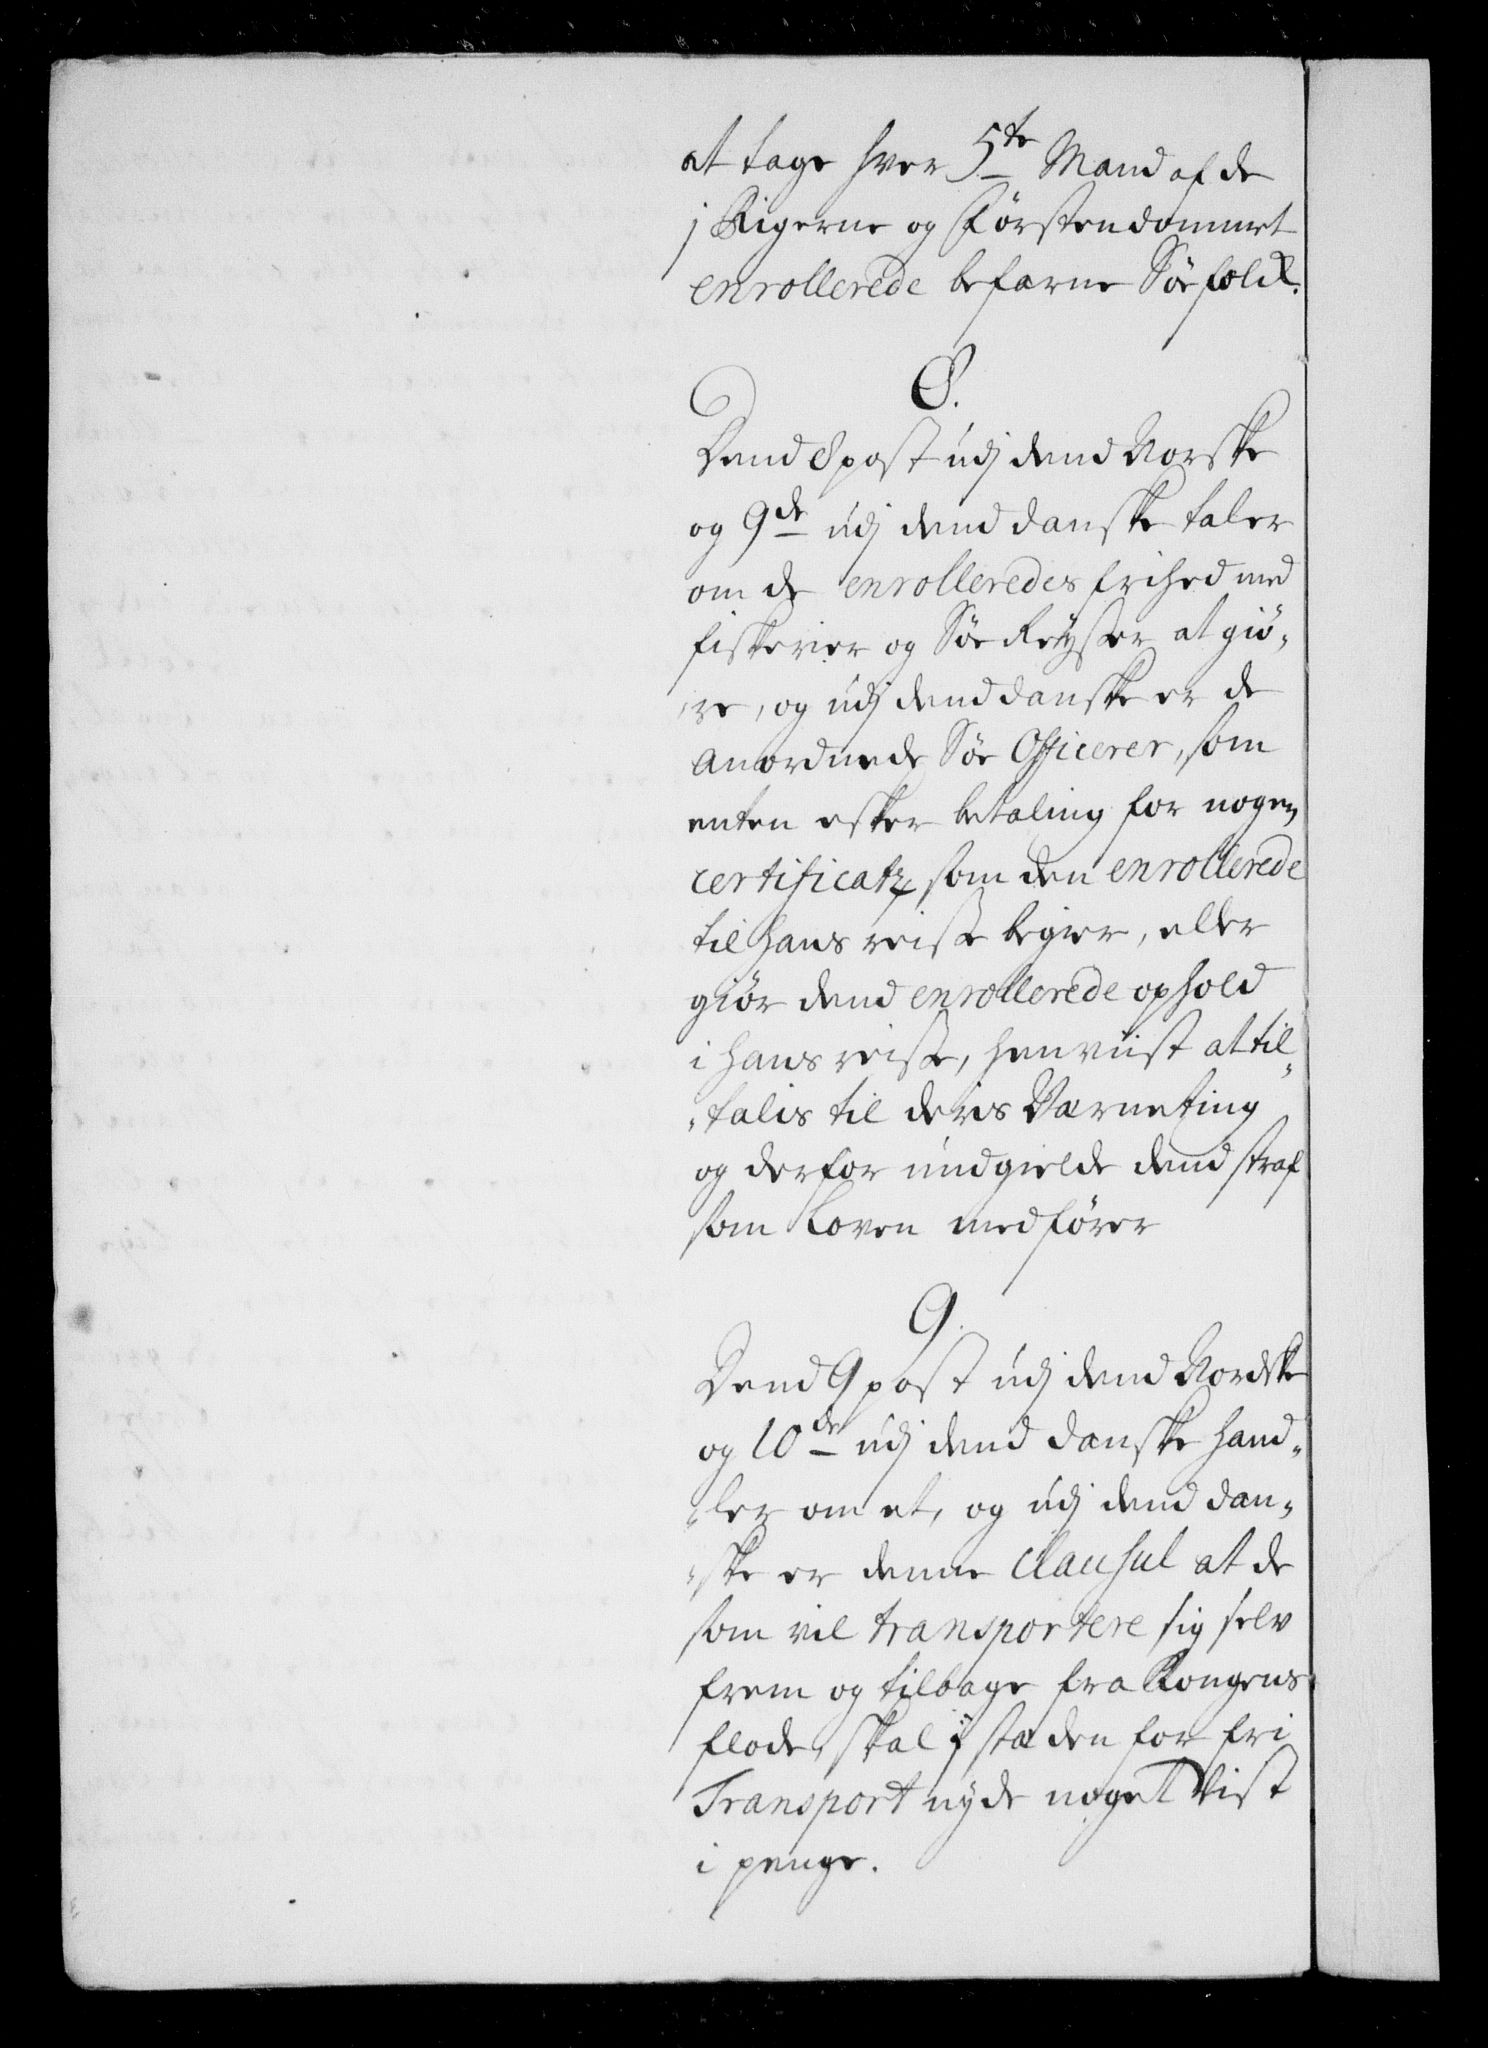 at tage hver 5te Mand af de
j Rigerne og Førstendommet
enrollerede befarne Söefolck.
8.
Dend 8 post udj dend Norske
og 9de udj dend danske taler
om de enrolleredes frihed med
fiskerier og Söe Reyser at giö-
re, og udj dend danske er de
Anordnede Söe Officerer, som
enten esker betaling for nogen
certificat, som den enrollerede
til hans reise begier, eller
giör dend enrollerede ophold
i hans reise, henviist at til-
talis til deris Værneting
og derfor undgielde dend straf
som Loven medfører
9.
Dend 9 post udj dend Nordske
og 10de udj dend danske hand-
ler om et, og udj dend dan-
ske er denne Clausul at de
som vil transportere sig selv
frem og tilbage fra Kongens
flode, skal j stæden for fri
Transport nyde noget Vist
i penge.